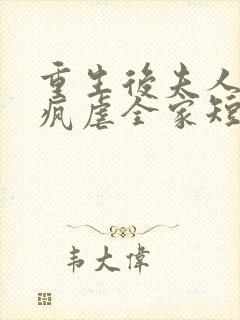 重生後夫人
瘋虐全家短
韦大偉